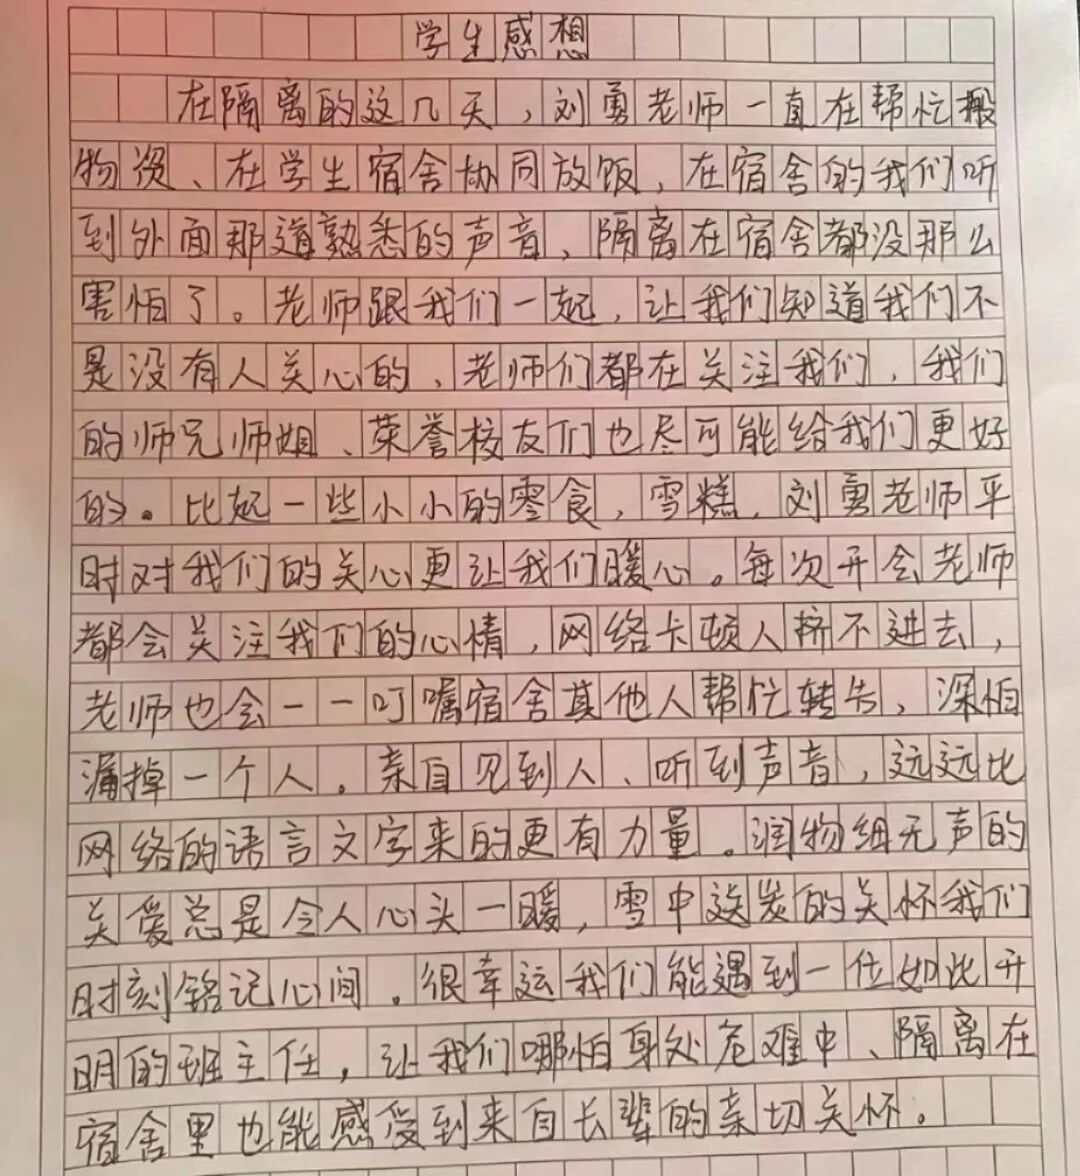 学生感想
在隔离的这几天，刘勇老师一直在帮忙搬
物资、在学生宿舍协同放饭，在宿舍的我们听
到外面那道熟悉的声音，隔离在宿舍都没那么
害怕了。老师跟我们一起，让我们知道我们不
是没有人关心的，老师们都在关注我们，我们
的师兄师姐、荣誉校友们也尽可能给我们更好
的。比起一些小小的零食，雪糕，刘勇老师平
时对我们的关心更让我们暖心。每次开会老师
都会关注我们的心情，网络卡顿人挤不进去，
老师也会一一叮嘱宿舍其他人帮忙转告，深怕
漏掉一个人。亲自见到人、听到声音，远远比
网络的语言文字来的更有力量。润物细无声的
关爱总是令人心头一暖，雪中送炭的关怀我们
时刻铭记心间。很幸运我们能遇到一位如此开
明的班主任，让我们哪怕身处危难中、隔离在
宿舍里也能感受到来自长辈的亲切关怀。